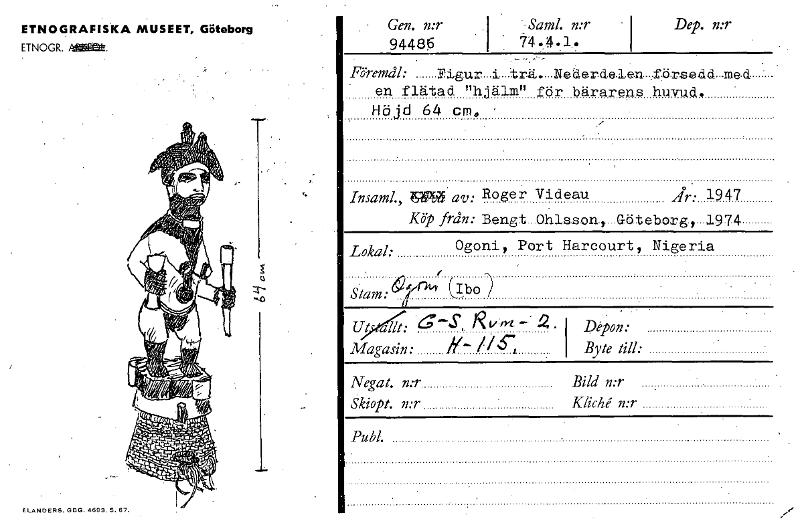 ETNOGRAFISKA MUSEET, Göteborg
ETNOGR.
64 cm
ELANDERS, GBG. 4693. S. 67.
Gen. n:r Saml. n:r Dep. n:r
94486 74.4.1.
Föremål: Figur i trä. Nederdelen försedd med
en flätad "hjälm" för bärarens huvud.
Höjd 64 cm.
Insaml., av: Roger Videau År: 1947
Köp från: Bengt Ohlsson, Göteborg, 1974
Lokal: Ogoni, Port Harcourt, Nigeria
Stam: Ogoni (Ibo)
Utställt: G-S. Rum - 2. Depon:
Magasin: H-115. Byte till:
Negat. n:r Bild n:r
Skiopt. n:r Kliché n:r
Publ.